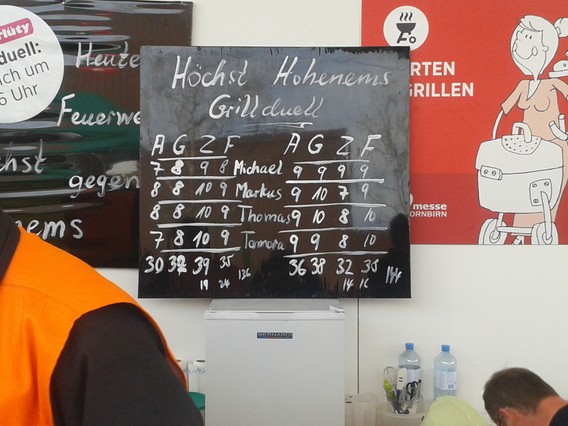 duell:
ich um
6 Uhr
Heute
Feuerwe
chst
gegen
nems
Höchst Hohenems
Grillduell
A G Z F A G Z F
7 8 9 8 Michael 9 9 9 9
8 8 10 9 Markus 9 10 7 9
8 8 10 9 Thomas 9 10 8 10
7 8 10 9 Tamara 9 9 8 10
30 32 39 35 136 36 38 32 35
19 24 14 16
BERNARD
RTEN
GRILLEN
messe
ORNBIRN